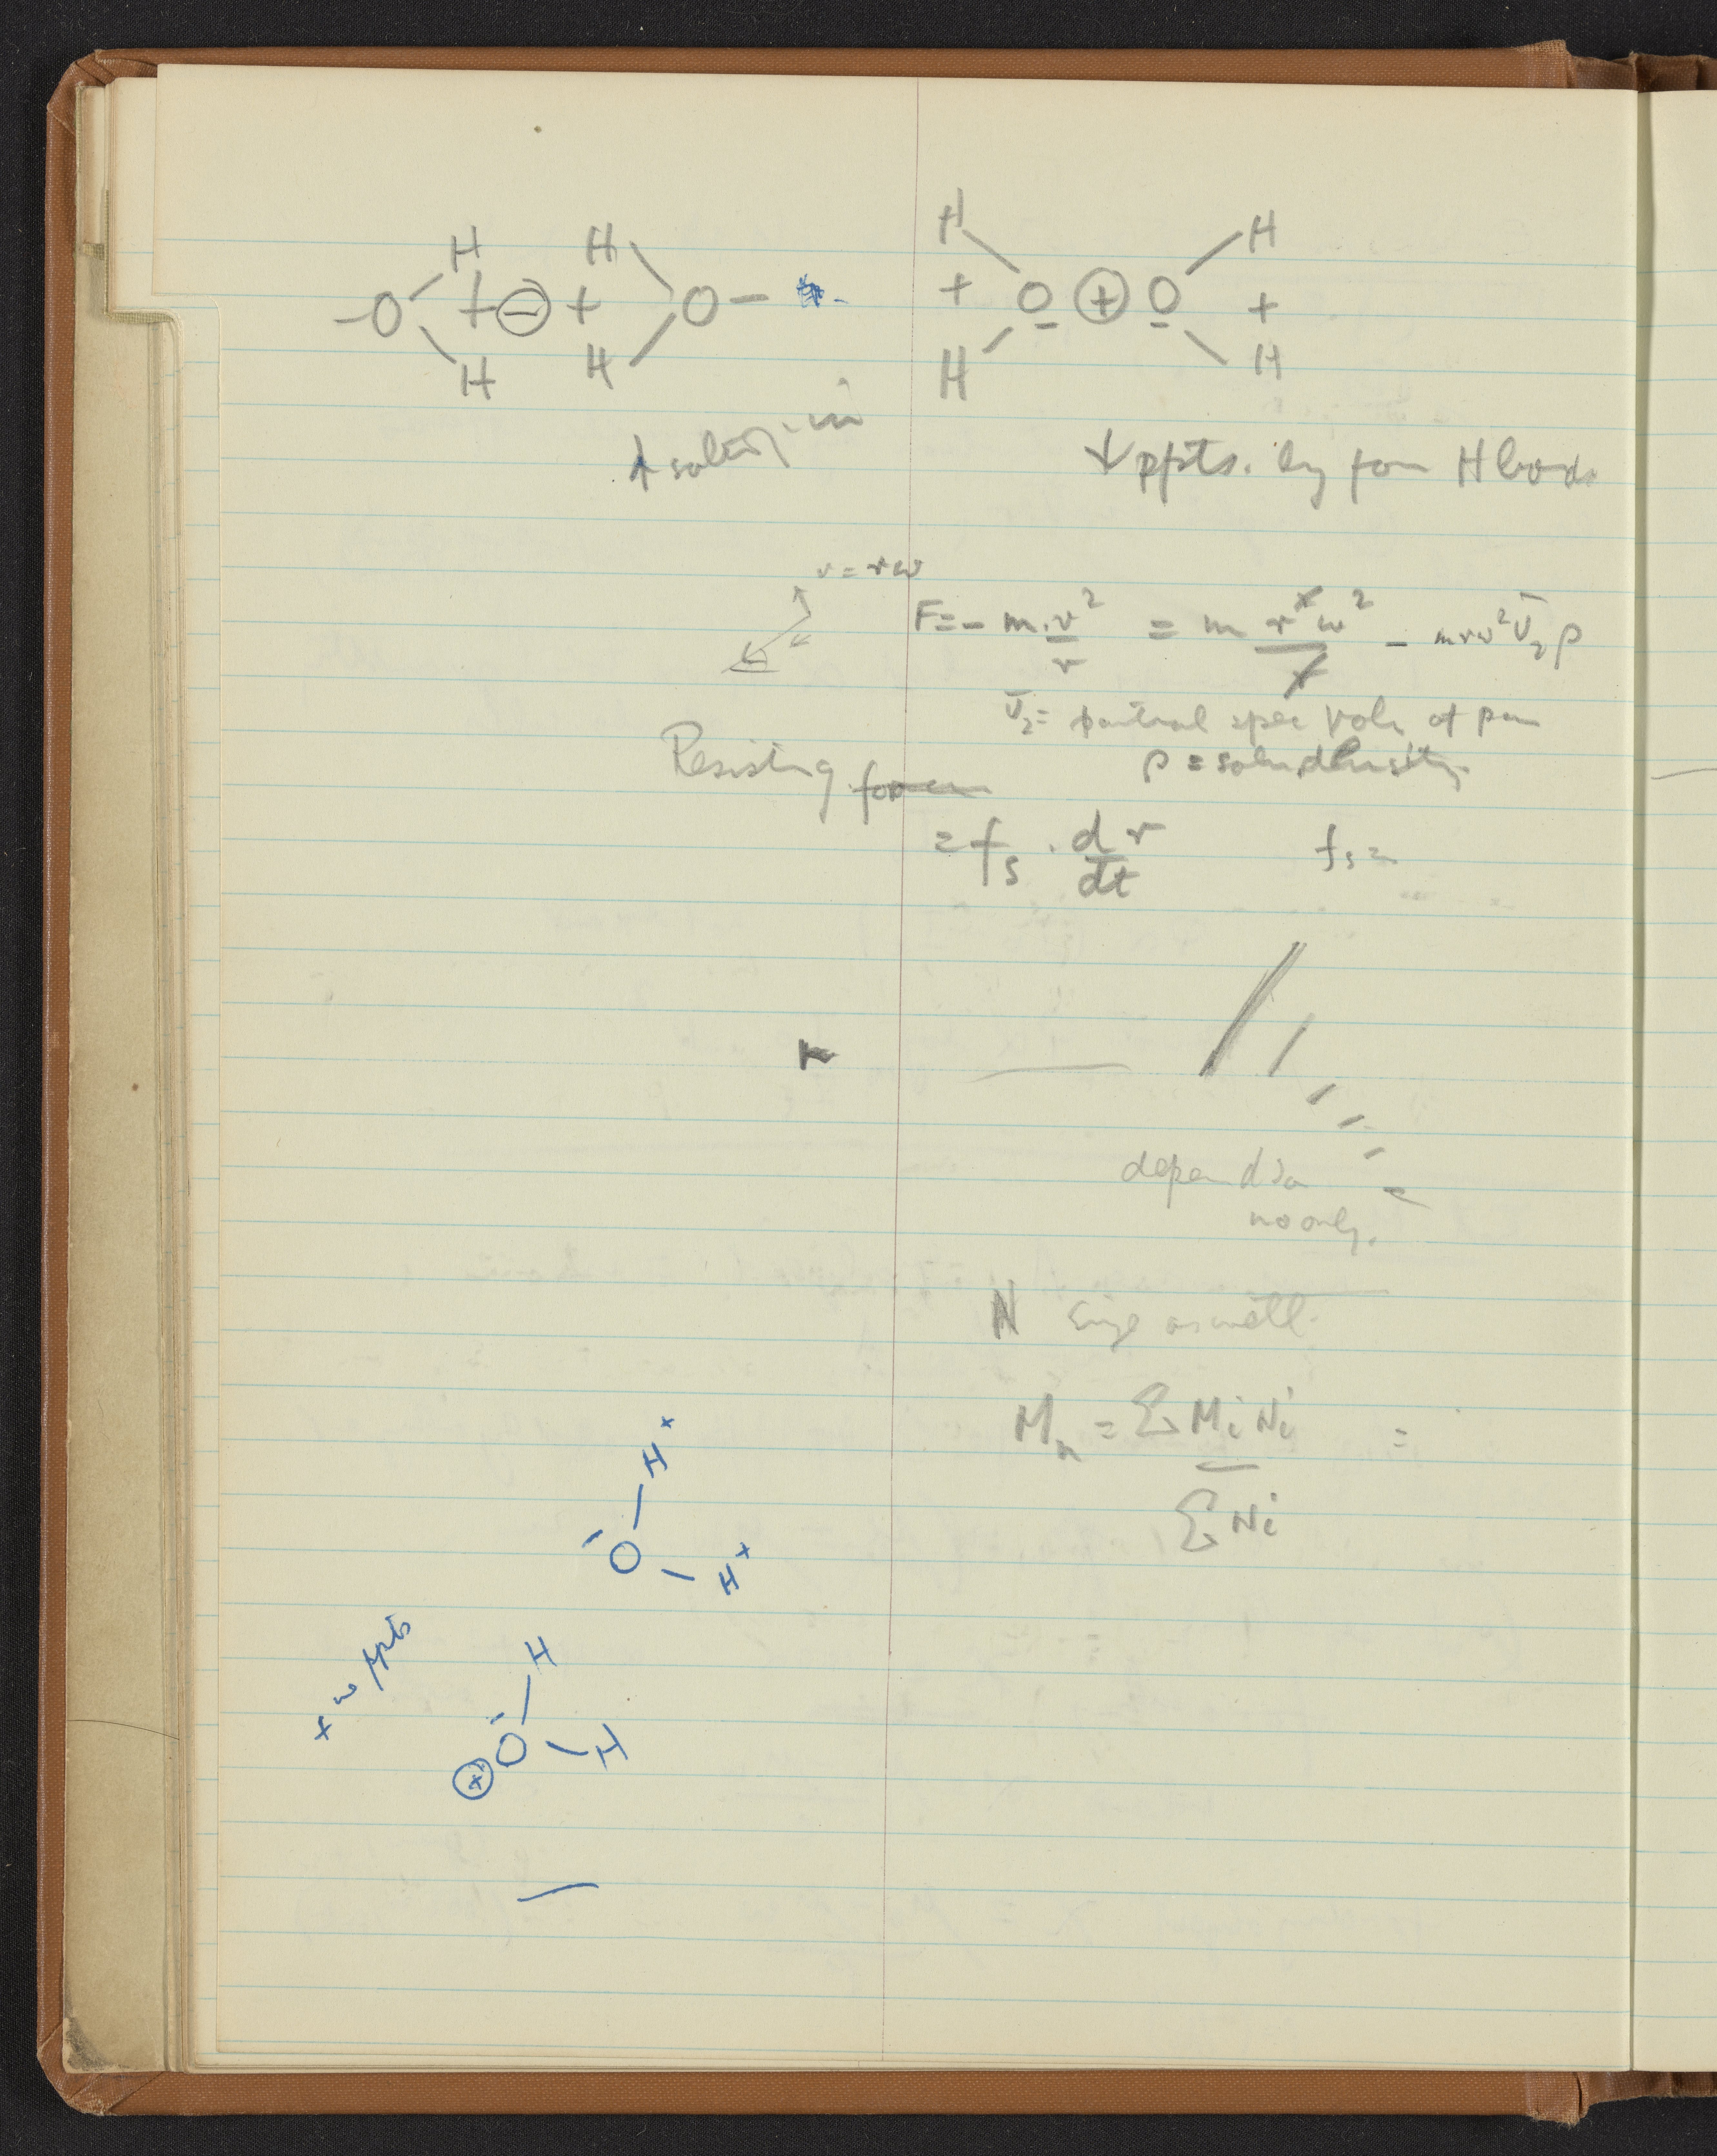 H H H H
-O + ⊖ + O- + O ⊕ O +
H H H H
↑ salting-in
↓ ppts. by form H bonds
v = rω
F = - m.v²/r = m r²ω²/r - mrω² V̄₂ρ
V̄₂ = partial spec vol of
ρ = soln density
Resisting force
= fs . dr/dt fs =
r
depends on
no only.
N size as well.
Mn = ΣMiNi =
ΣNi
H+
- O
H+
+ ppts
H
- O H
⊕